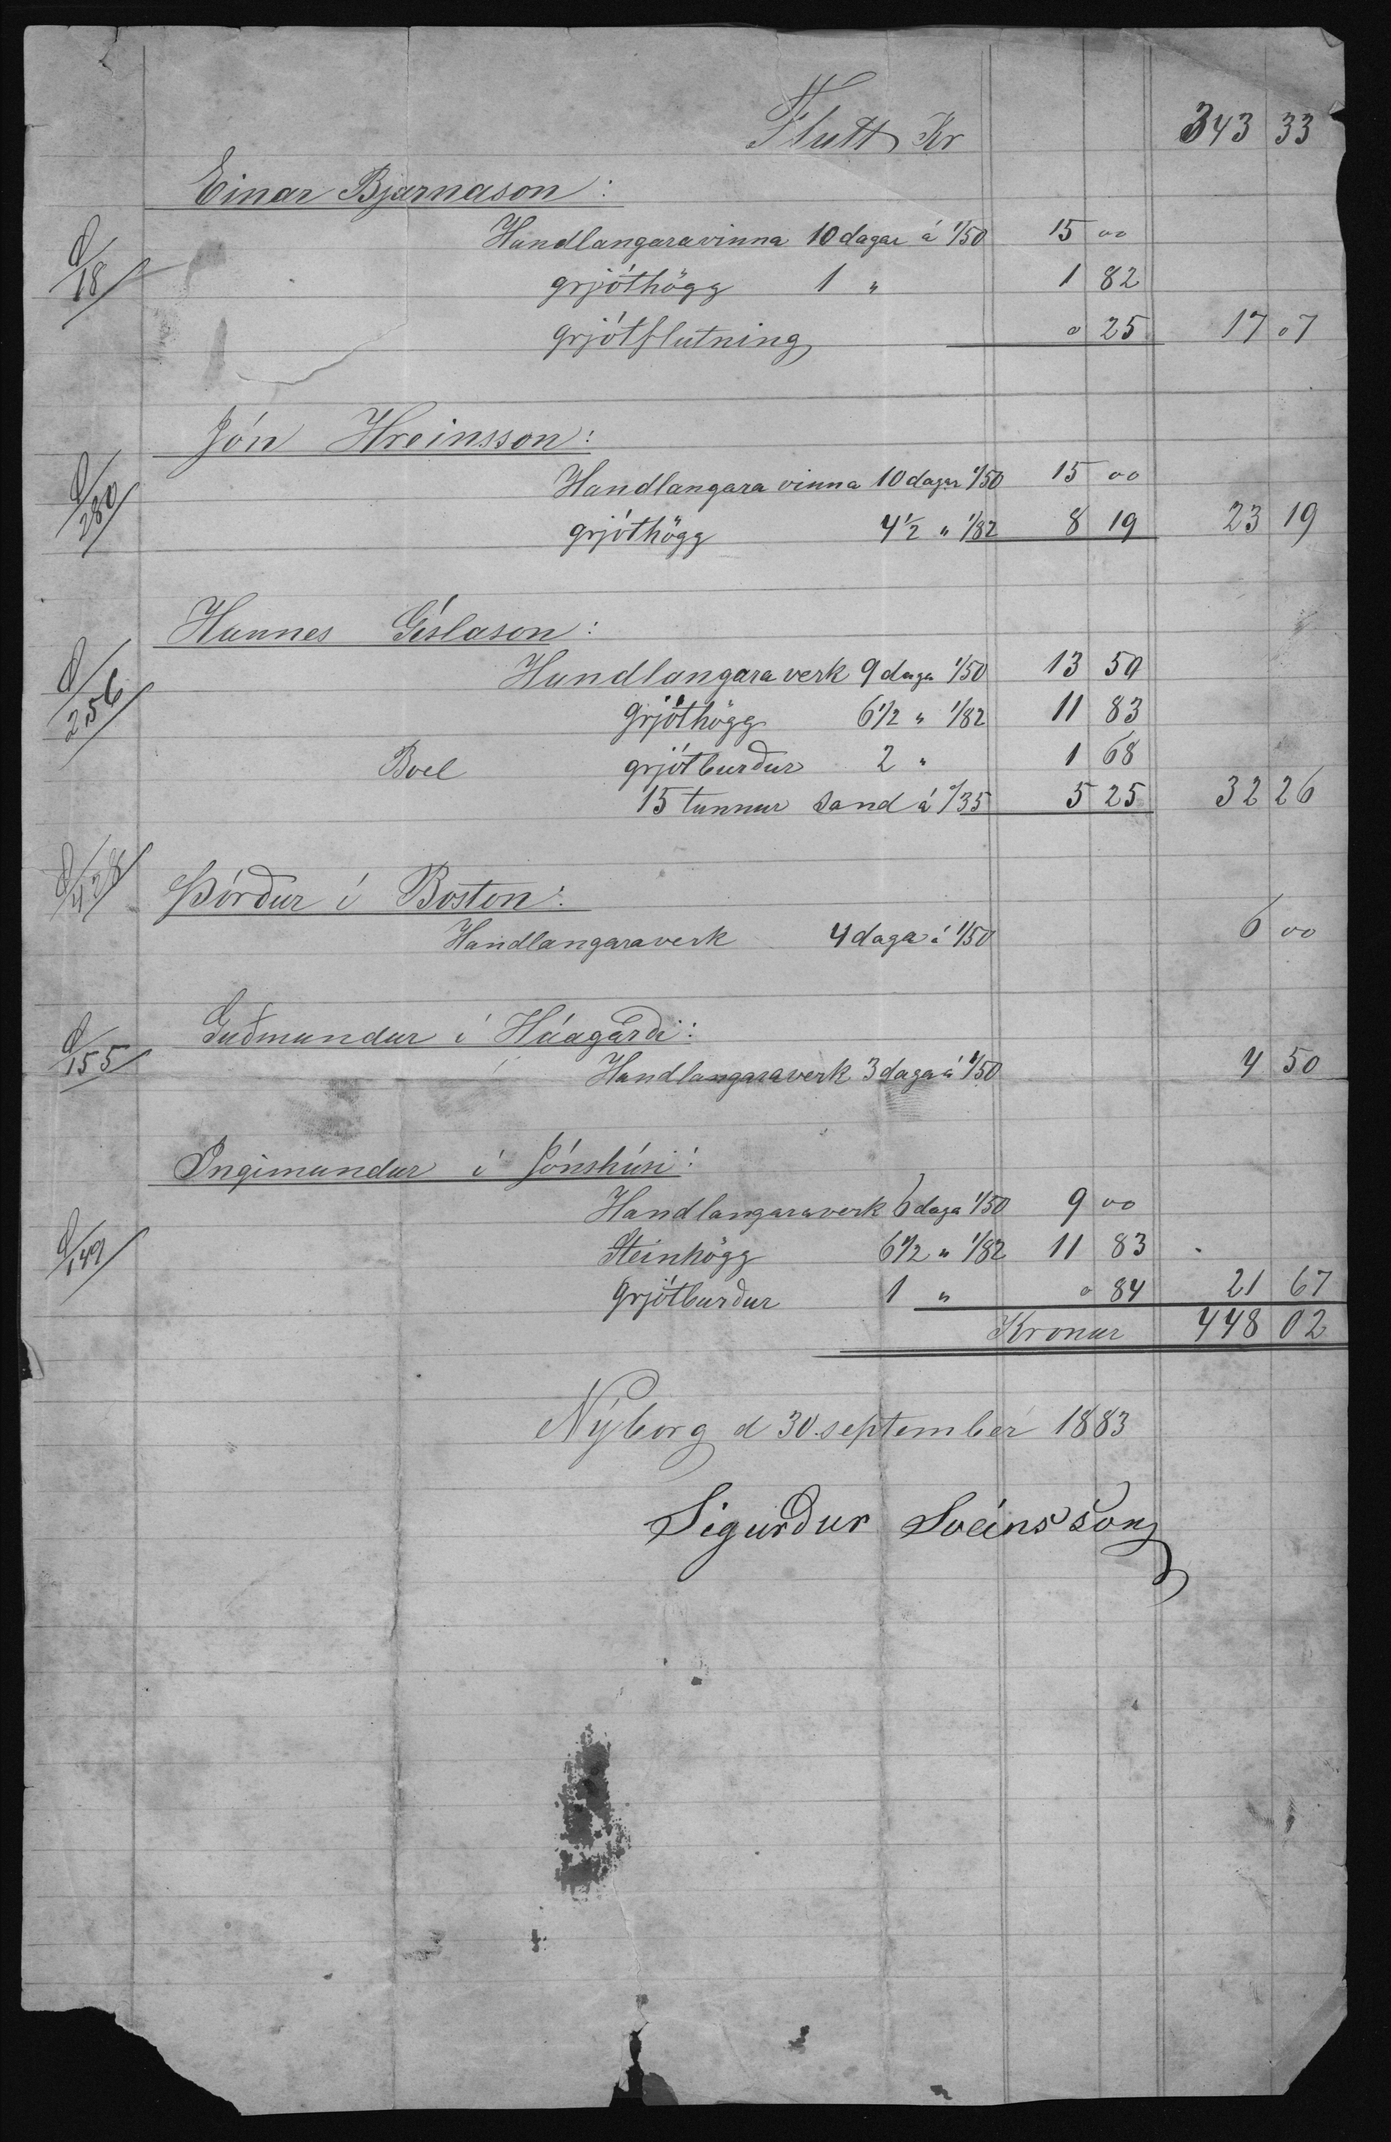 Flutt Kr 343 33
Einar Bjarnason:
Handlangaravinna 10 dagar á 1/50 15 00
18
grjóthögg 1 " 1 82
grjótflutning 0 25 17 07
Jón Hreinsson:
280 Handlangara vinna 10 dagar 1/50 15 00
grjóthögg 4 1/2 " 1/82 8 19 23 19
Hannes Gíslason:
Handlangara verk 9 daga 1/50 13 50
256 grjóthögg 6 1/2 " 1/82 11 83
Boel grjótburður 2 " 1 68
15 tunnur sand á "/35 5 25 32 26
428 Þórður í Boston:
Handlangaraverk 4 daga á 1/50 6 00
Guðmundur í Háagarði:
155 Handlangaraverk 3 daga á 1/50 4 50
Ingimundur í Jónshúsi:
Handlangaraverk 6 daga 1/50 9 00
149 Steinhögg 6 1/2 " 1/82 11 83
grjótburður 1 " 0 84 21 67
Kronur 448 02
Nýborg d 30. september 1883
Sigurður Sveinsson